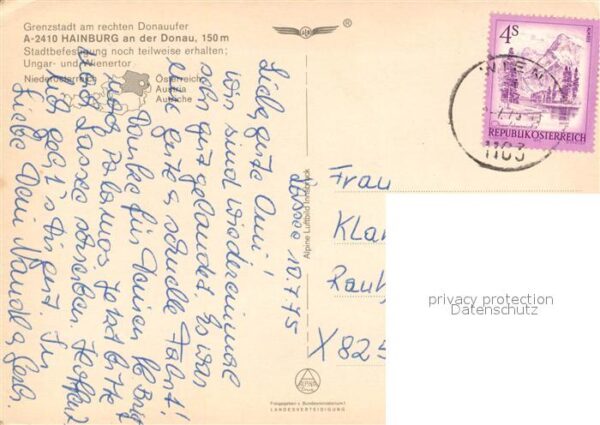 Grenzstadt am rechten Donauufer
A-2410 HAINBURG an der Donau, 150 m
Stadtbefestigung noch teilweise erhalten;
Ungar- und Wienertor
Niederösterreich
Österreich
Austria
Autriche
®
4S
REPUBLIK ÖSTERREICH
WIEN
1103
Lassee 10.7.75
Liebe, gute Omi!
Wir sind wiedereinmal
sehr gut gelandet. Es war
eine gute & schnelle Fahrt!
Danke für Deinen lb Brief
nach Palamos. Jetzt bitte
nach Lassee schreiben. Hoffentl.
geht's Dir gut. In
Liebe Dein Mandi & Gerh.
Alpine Luftbild Innsbruck
Frau
Klar
Raut
X825
privacy protection
Datenschutz
ALPINA
Freigegeben v. Bundesministerium f.
LANDESVERTEIDIGUNG